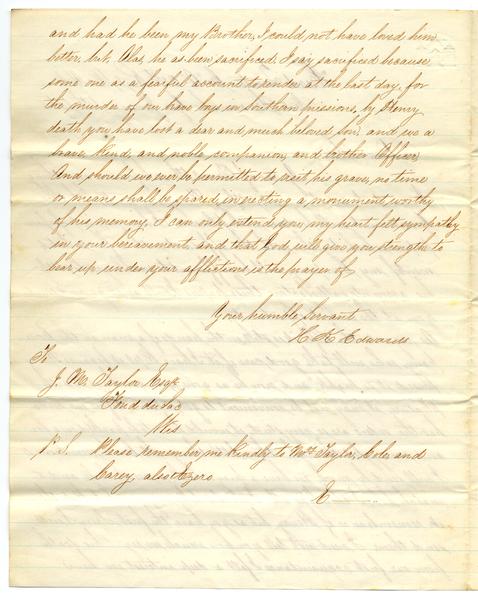 and had he been my Brother, I could not have loved him
better, but, Alas, he as been sacrificed. I say sacrificed because
some one as a fearful account to render at the last day, for
the murder of our brave boys in Southern prisons, by Henry
death you have lost a dear and much beloved son, and we a
brave, kind, and noble companion, and brother Officer
And should we ever be permitted to visit his grave, no time
or means shall be spared in erecting a monument worthy
of his memory. I can only extend you my heart felt sympathy
in your bereavement and that God will give you strength to
bear up under your afflictions is the prayer of
Your humble Servant
H. K. Edwards
To
J. M. Taylor Esqr
Fond du Lac
Wis
P.S. Please remember me kindly to Mrs Taylor, Cole, and
Carey, also
E